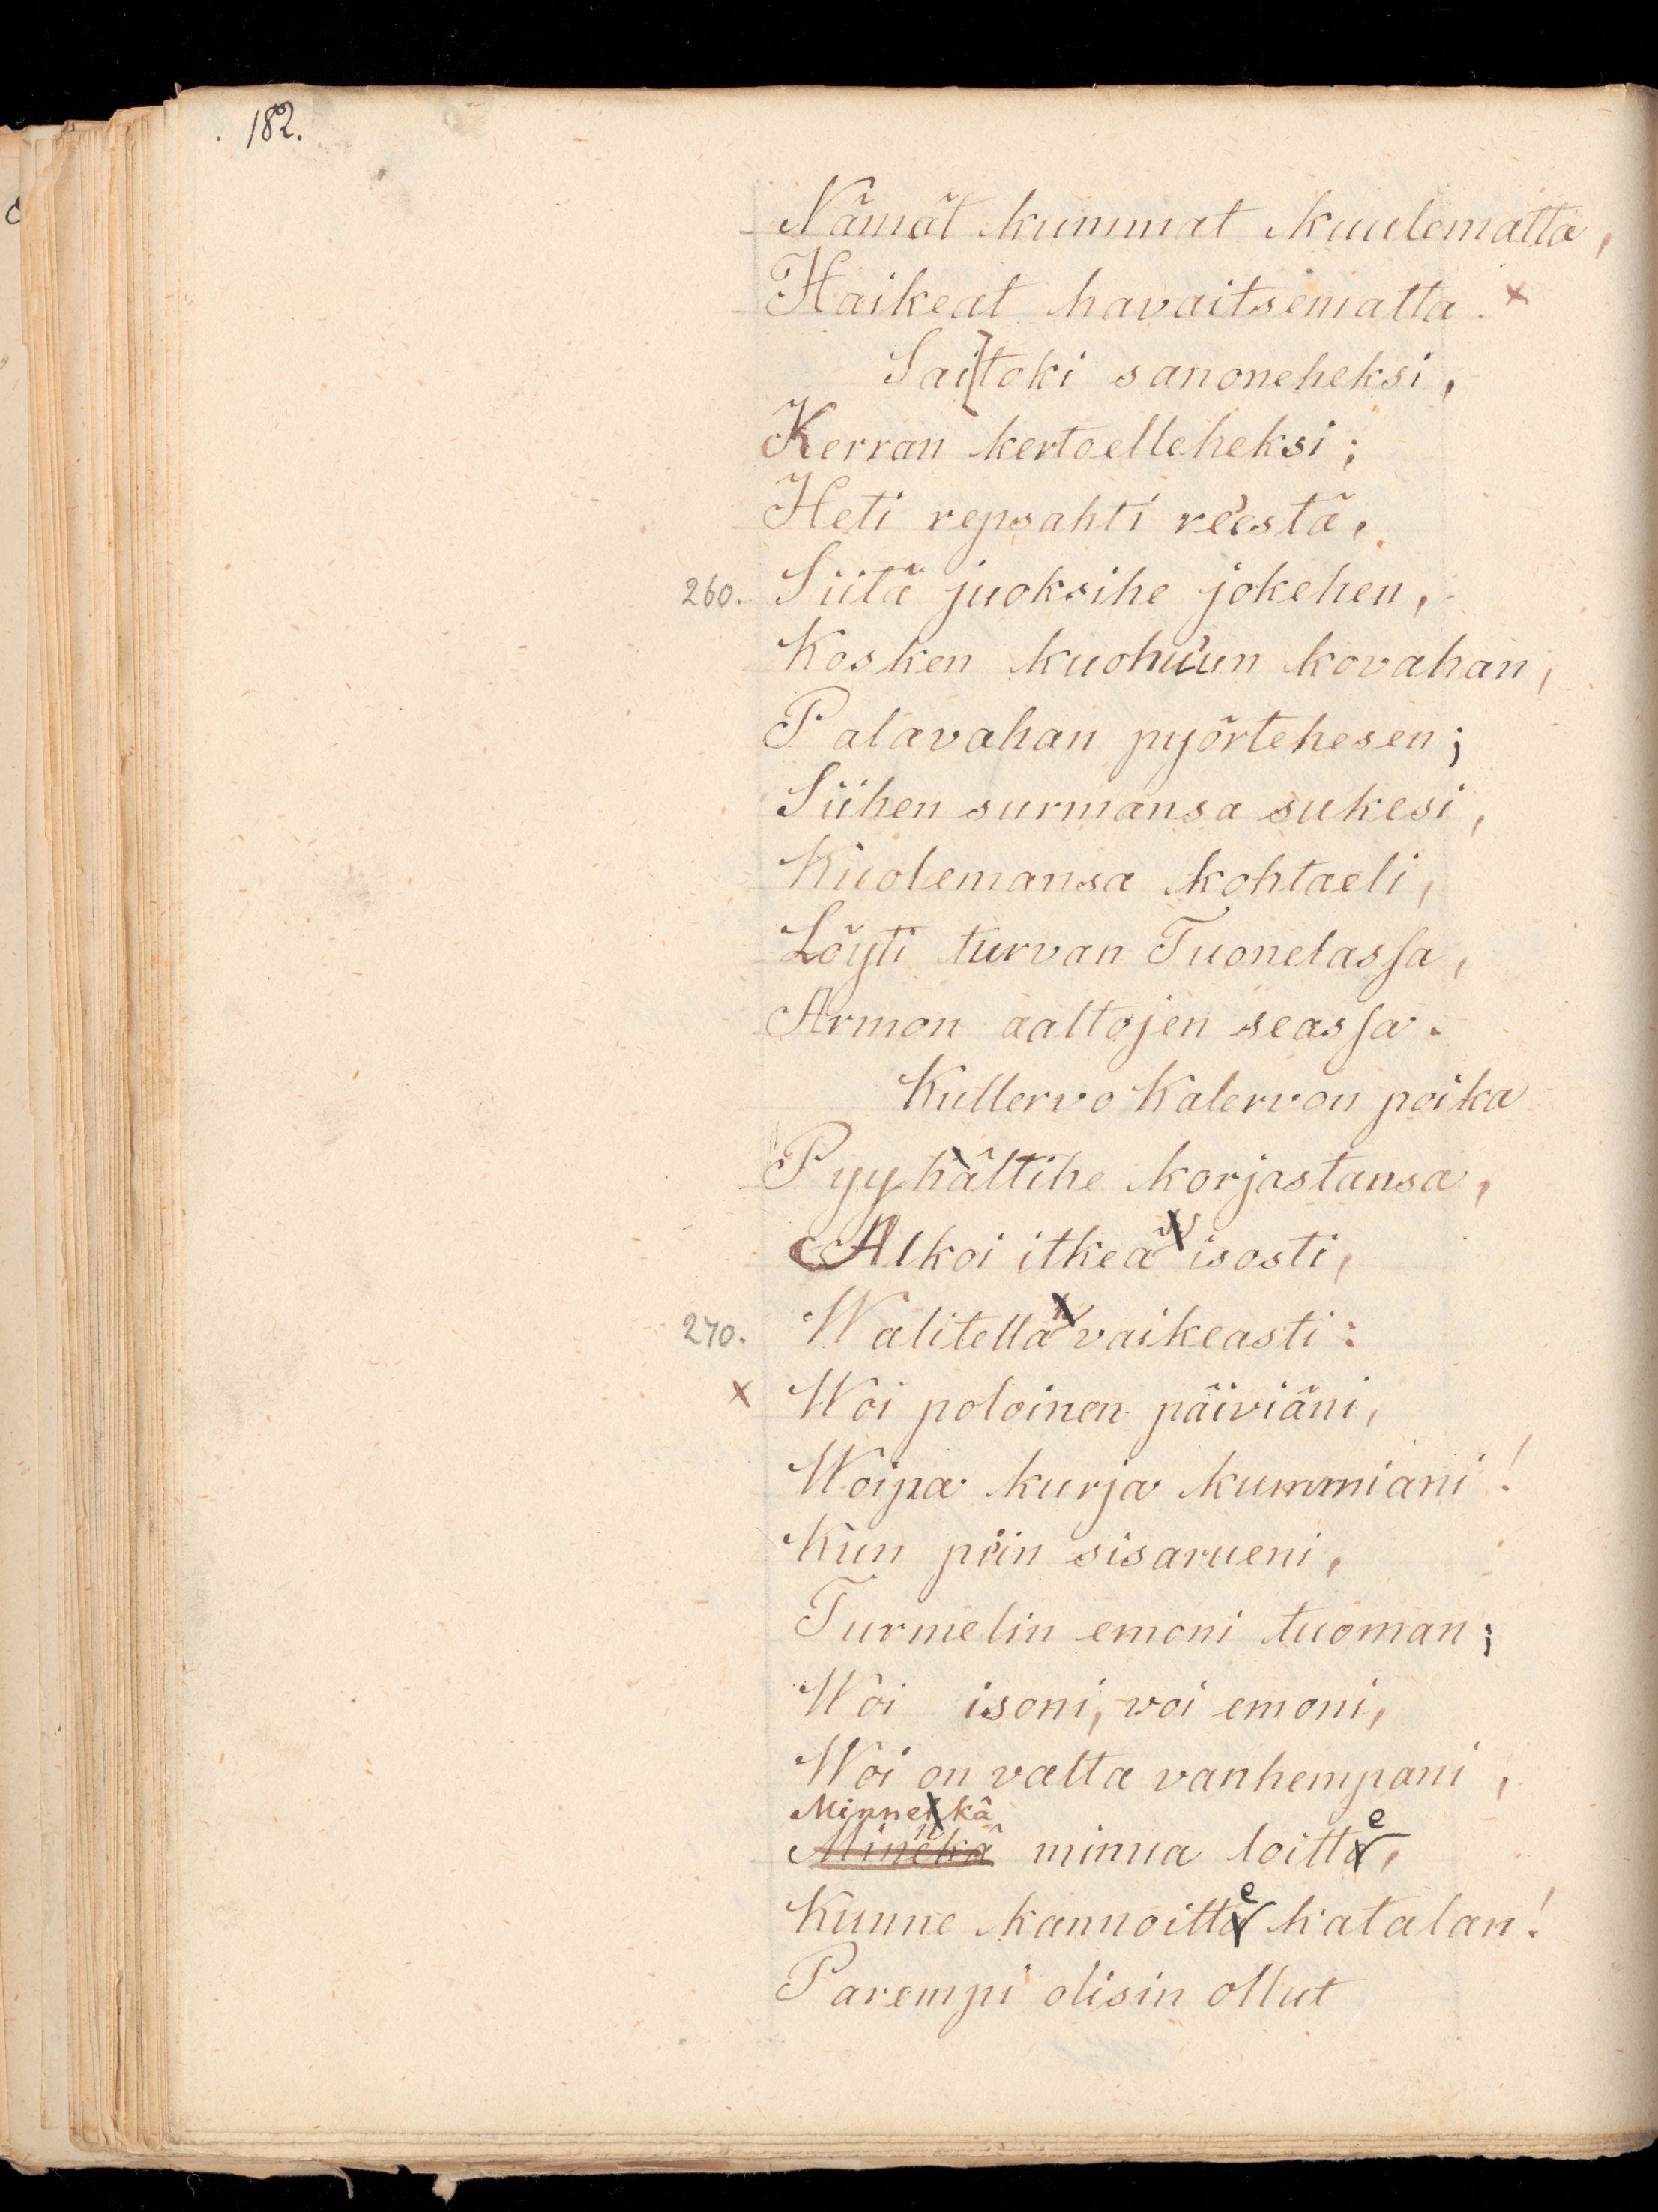 182.
Nämät kummat kuulematta,
Haikeat havaitsematta. ×
Sai[toki sanoneheksi,
Kerran kertoelleheksi;
Heti repsahti re'estä,
260. Siitä juoksihe jokehen,
Kosken kuohu'un kovahan,
Palavahan pyörtehesen;
Siihen surmansa sukesi,
Kuolemansa kohtaeli,
Löyti turvan Tuonelassa,
Armon aaltojen seassa.
Kullervo Kalervon poika
Pyyhältihe korjastansa,
Alkoi itkeä isosti,
270. Walitella vaikeasti:
× Woi poloinen päiviäni,
Woipa kurja kummiani!
Kun pi'in sisarueni,
Turmelin emoni tuoman;
Woi isoni, voi emoni,
Woi on valta vanhempani,
Minnekkä
Minekä minua loitte,
Kunne kannoitte katalan!
Parempi olisin ollut